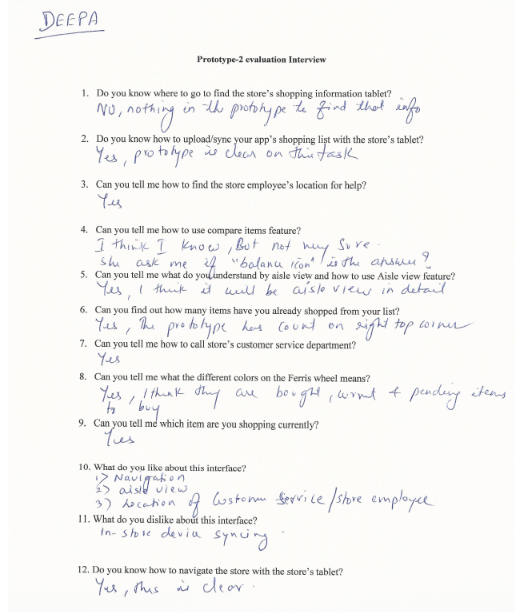 DEEPA
Prototype-2 evaluation Interview
1. Do you know where to go to find the store's shopping information tablet?
NO, nothing in the prototype to find that info
2. Do you know how to upload/sync your app's shopping list with the store's tablet?
Yes, prototype is clear on this task
3. Can you tell me how to find the store employee's location for help?
Yes
4. Can you tell me how to use compare items feature?
I think I know, But not very Sure.
she ask me if "balance icon" is the answer?
5. Can you tell me what do you understand by aisle view and how to use Aisle view feature?
Yes, I think it will be aisle view in detail
6. Can you find out how many items have you already shopped from your list?
Yes, The prototype has count on right top corner
7. Can you tell me how to call store's customer service department?
Yes
8. Can you tell me what the different colors on the Ferris wheel means?
Yes, I think they are bought, current & pending items
to buy
9. Can you tell me which item are you shopping currently?
Yes
10. What do you like about this interface?
1) Navigation
2) aisle view
3) Location of Customer Service/store employee
11. What do you dislike about this interface?
In-store device syncing.
12. Do you know how to navigate the store with the store's tablet?
Yes, this is clear.